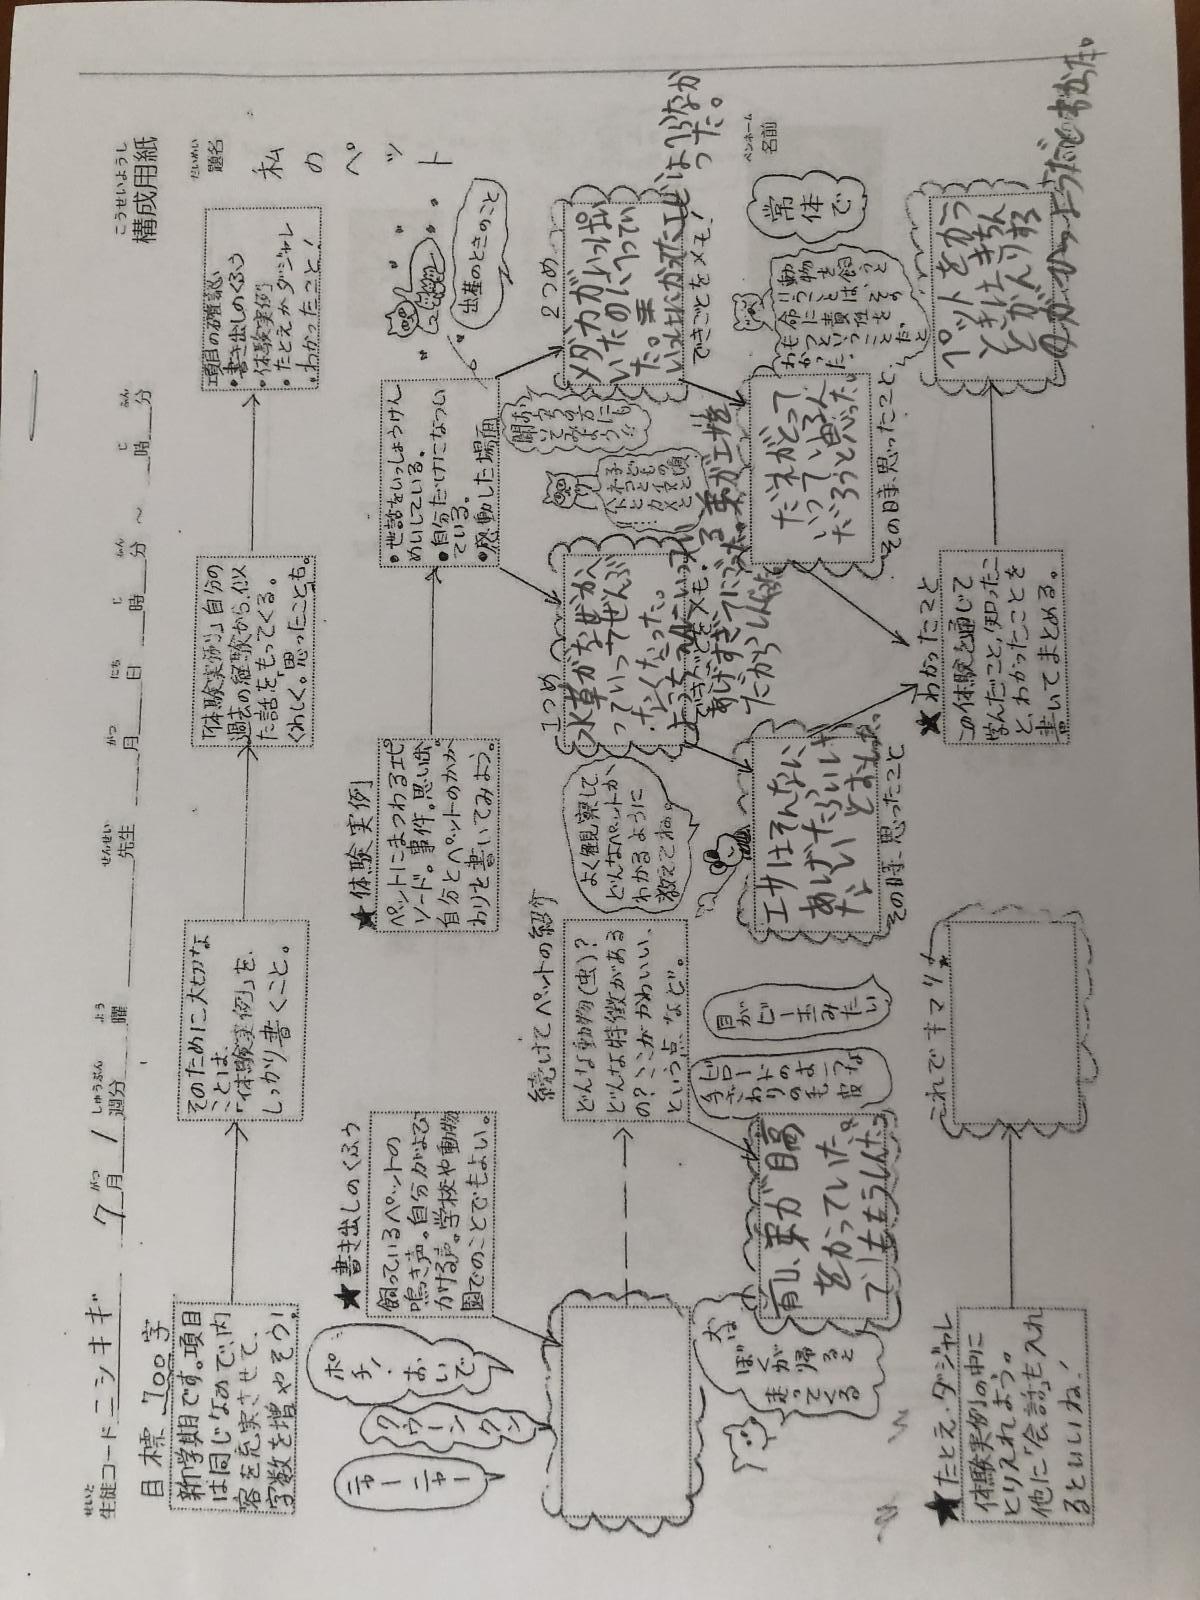 構成用紙
こうせいようし
生徒コード ニシキギ 7月 1週分 曜 先生 月 日 時 分 〜 時 分
せいと がつ しゅうぶん よう せんせい がつ にち じ ふん じ ふん
題名
だいめい
私のペット
目標 700字
新学期です。項目
は同じなので、内
容を充実させて、
字数を増やそう!
そのために大切な
ことは、
「体験実例」を、
しっかり書くこと。
「体験実例」自分の
過去の経験から、似
た話をもってくる。
くわしく。思ったことも。
項目の確認
・書き出しのくふう
・体験実例
・たとえかダジャレ
・わかったこと!
★書き出しのくふう
飼っているペットの
鳴き声。自分がよび
かける声。学校や動物
園でのことでもよい。
ポチ!
おいで
クウーン
クン
ニャー
ニャー
★体験実例
ペットにまつわるエピ
ソード。事件。思い出。
自分とペットのかか
わりを書いてみよう。
・世話をいっしょうけん
めいしている。
・自分だけになつい
ている。
・感動した場面
出産のときのこと
続けてペットの紹介
どんな動物(虫)?
どんな特徴がある
の?ここがかわいい、
という点、など。
よく観察して、
どんなペットか、
わかるように
教えてね。
1つめ
水草がなぜかへ
っていって、ぜんぶ
なくなった。
できごとをメモ!
2つめ
メダカがいっぱい
いたのにへってい
った。
できごとをメモ!
はへらなか
った。
おうちの方に
聞いてみよう
犬は
ぼくが
帰ると
走って
くる
前、弟が目高
をかっていた。
でももうしんだ。
目が
ビー玉
みたい
エサはそんなに
あげたらいけ
ないと思った。
その時、思ったこと
だれがとって
いっているん
だろうと思った。
その時、思ったこと
動物を
飼うと
いうことは、
命に責任を
もつという
ことだと
わかった。
常体で
ペンネーム
名前
★たとえ・ダジャレ
体験実例の中に
とり入れよう。
他に「会話」も入れ
るといいね!
これでキマリ
★わかったこと
この体験を通じて
学んだこと、知ったこ
と、わかったことを
書いてまとめる。
ペットをかう
ときは、きちん
とかんりする